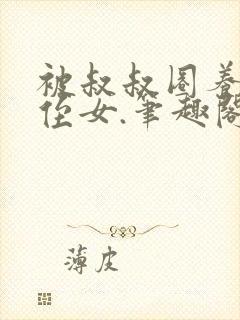 被叔叔圈养
侄女.笔趣阁
薄皮